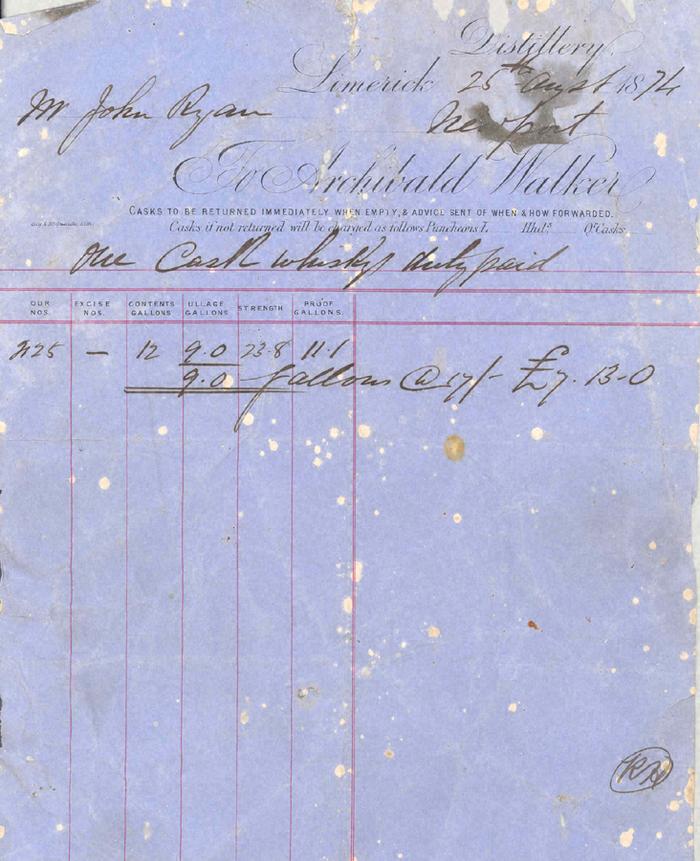 Distillery,
Limerick 25th Augst 1874
Mr John Ryan
Newport
To Archibald Walker
CASKS TO BE RETURNED IMMEDIATELY WHEN EMPTY, & ADVICE SENT OF WHEN & HOW FORWARDED.
Casks if not returned will be charged as follows Puncheons £ Hhds. Qr Casks
One Cask whisky duty paid
OUR NOS. EXCISE NOS. CONTENTS GALLONS ULLAGE GALLONS STRENGTH PROOF GALLONS.
225 — 12 9.0 23.8 11.1
9.0 Gallons @ 17/- £7.13-0